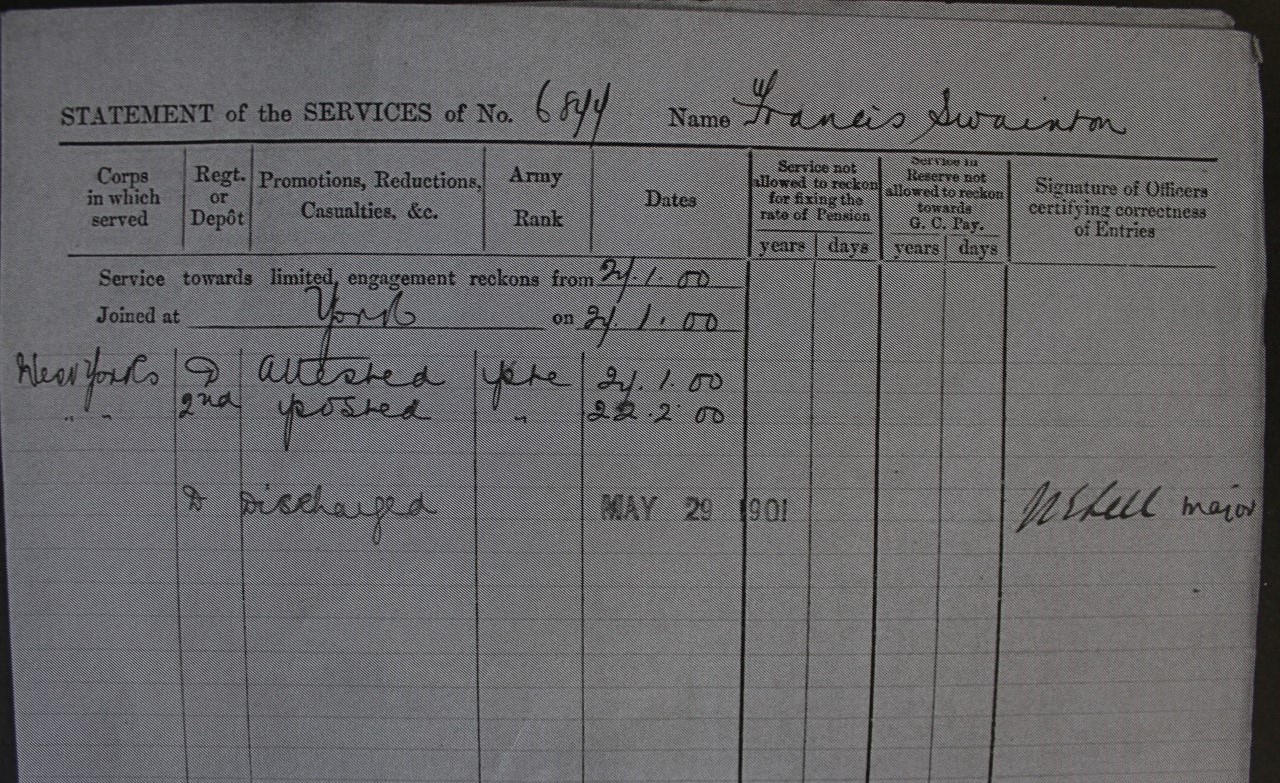 STATEMENT of the SERVICES of No. 6844 Name Francis Swainton
Corps in which served
Regt. or Depôt
Promotions, Reductions, Casualties, &c.
Army Rank
Dates
Service not allowed to reckon for fixing the rate of Pension
years days
Service in Reserve not allowed to reckon towards G. C. Pay.
years days
Signature of Officers certifying correctness of Entries
Service towards limited engagement reckons from 24.1.00
Joined at York on 24.1.00
West Yorks D Attested Pte 24.1.00
" " 2nd posted " 22.2.00
D Discharged MAY 29 1901 major